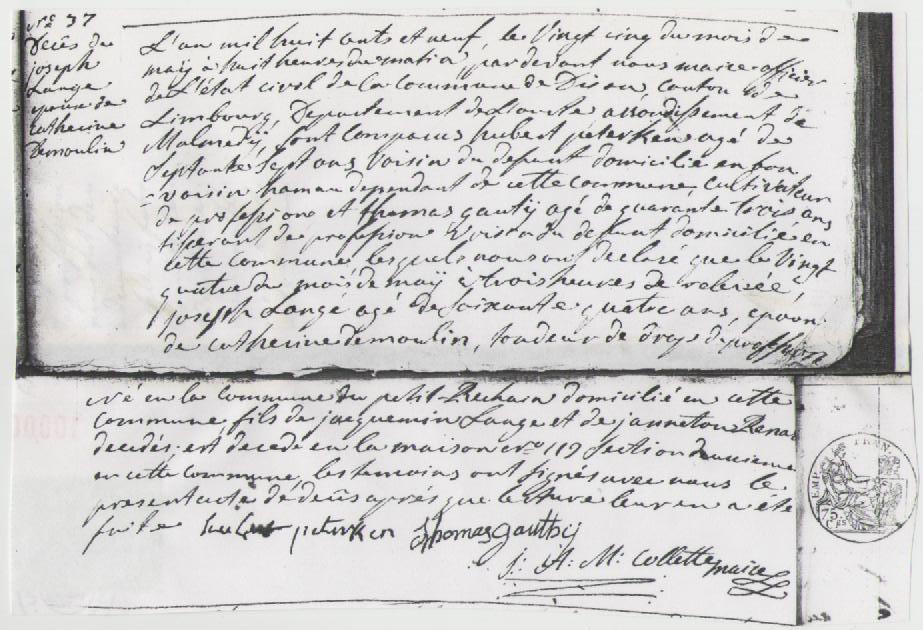 No 37
Décès de
joseph
Lange
epoux de
catherine
Demoulin
L'an mil huit cents et neuf, le Vingt cinq du mois de
maÿ à huit heures du matin, par devant nous maire officier
de L'état civil de La Commune de Dison, canton de
Limbourg, Departement de L'ourte arrondissement de
Malmedÿ, sont comparus hubert peterken agé de
Septante Sept ans, Voisin du defunt domicilié en bon
-voisin hamau dependant de cette commune, Cultivateur
de profession et thomas gautÿ agé de quarante trois ans
tisserant de profession Voisin du defunt domicilié en
cette commune lesquels nous ont declaré que le Vingt
quatre du mois de maÿ à trois heures de relevée,
joseph Langé agé de Soixante quatre ans, epoux
de catherine demoulin, tondeur de drap de profession
né en la Commune du petit-Rechain domicilié en cette
commune, fils de jacquemin Lange et de janneton Renar
decédés, est decedé en la maison nro 119 Section
en cette Commune, les temoins ont signés avec nous le
present acte de décès après que lecture leur en a été
faite hubert peterken Thomas gauthÿ
j: A: M: Collette maire
EMP FRAN
75
CES